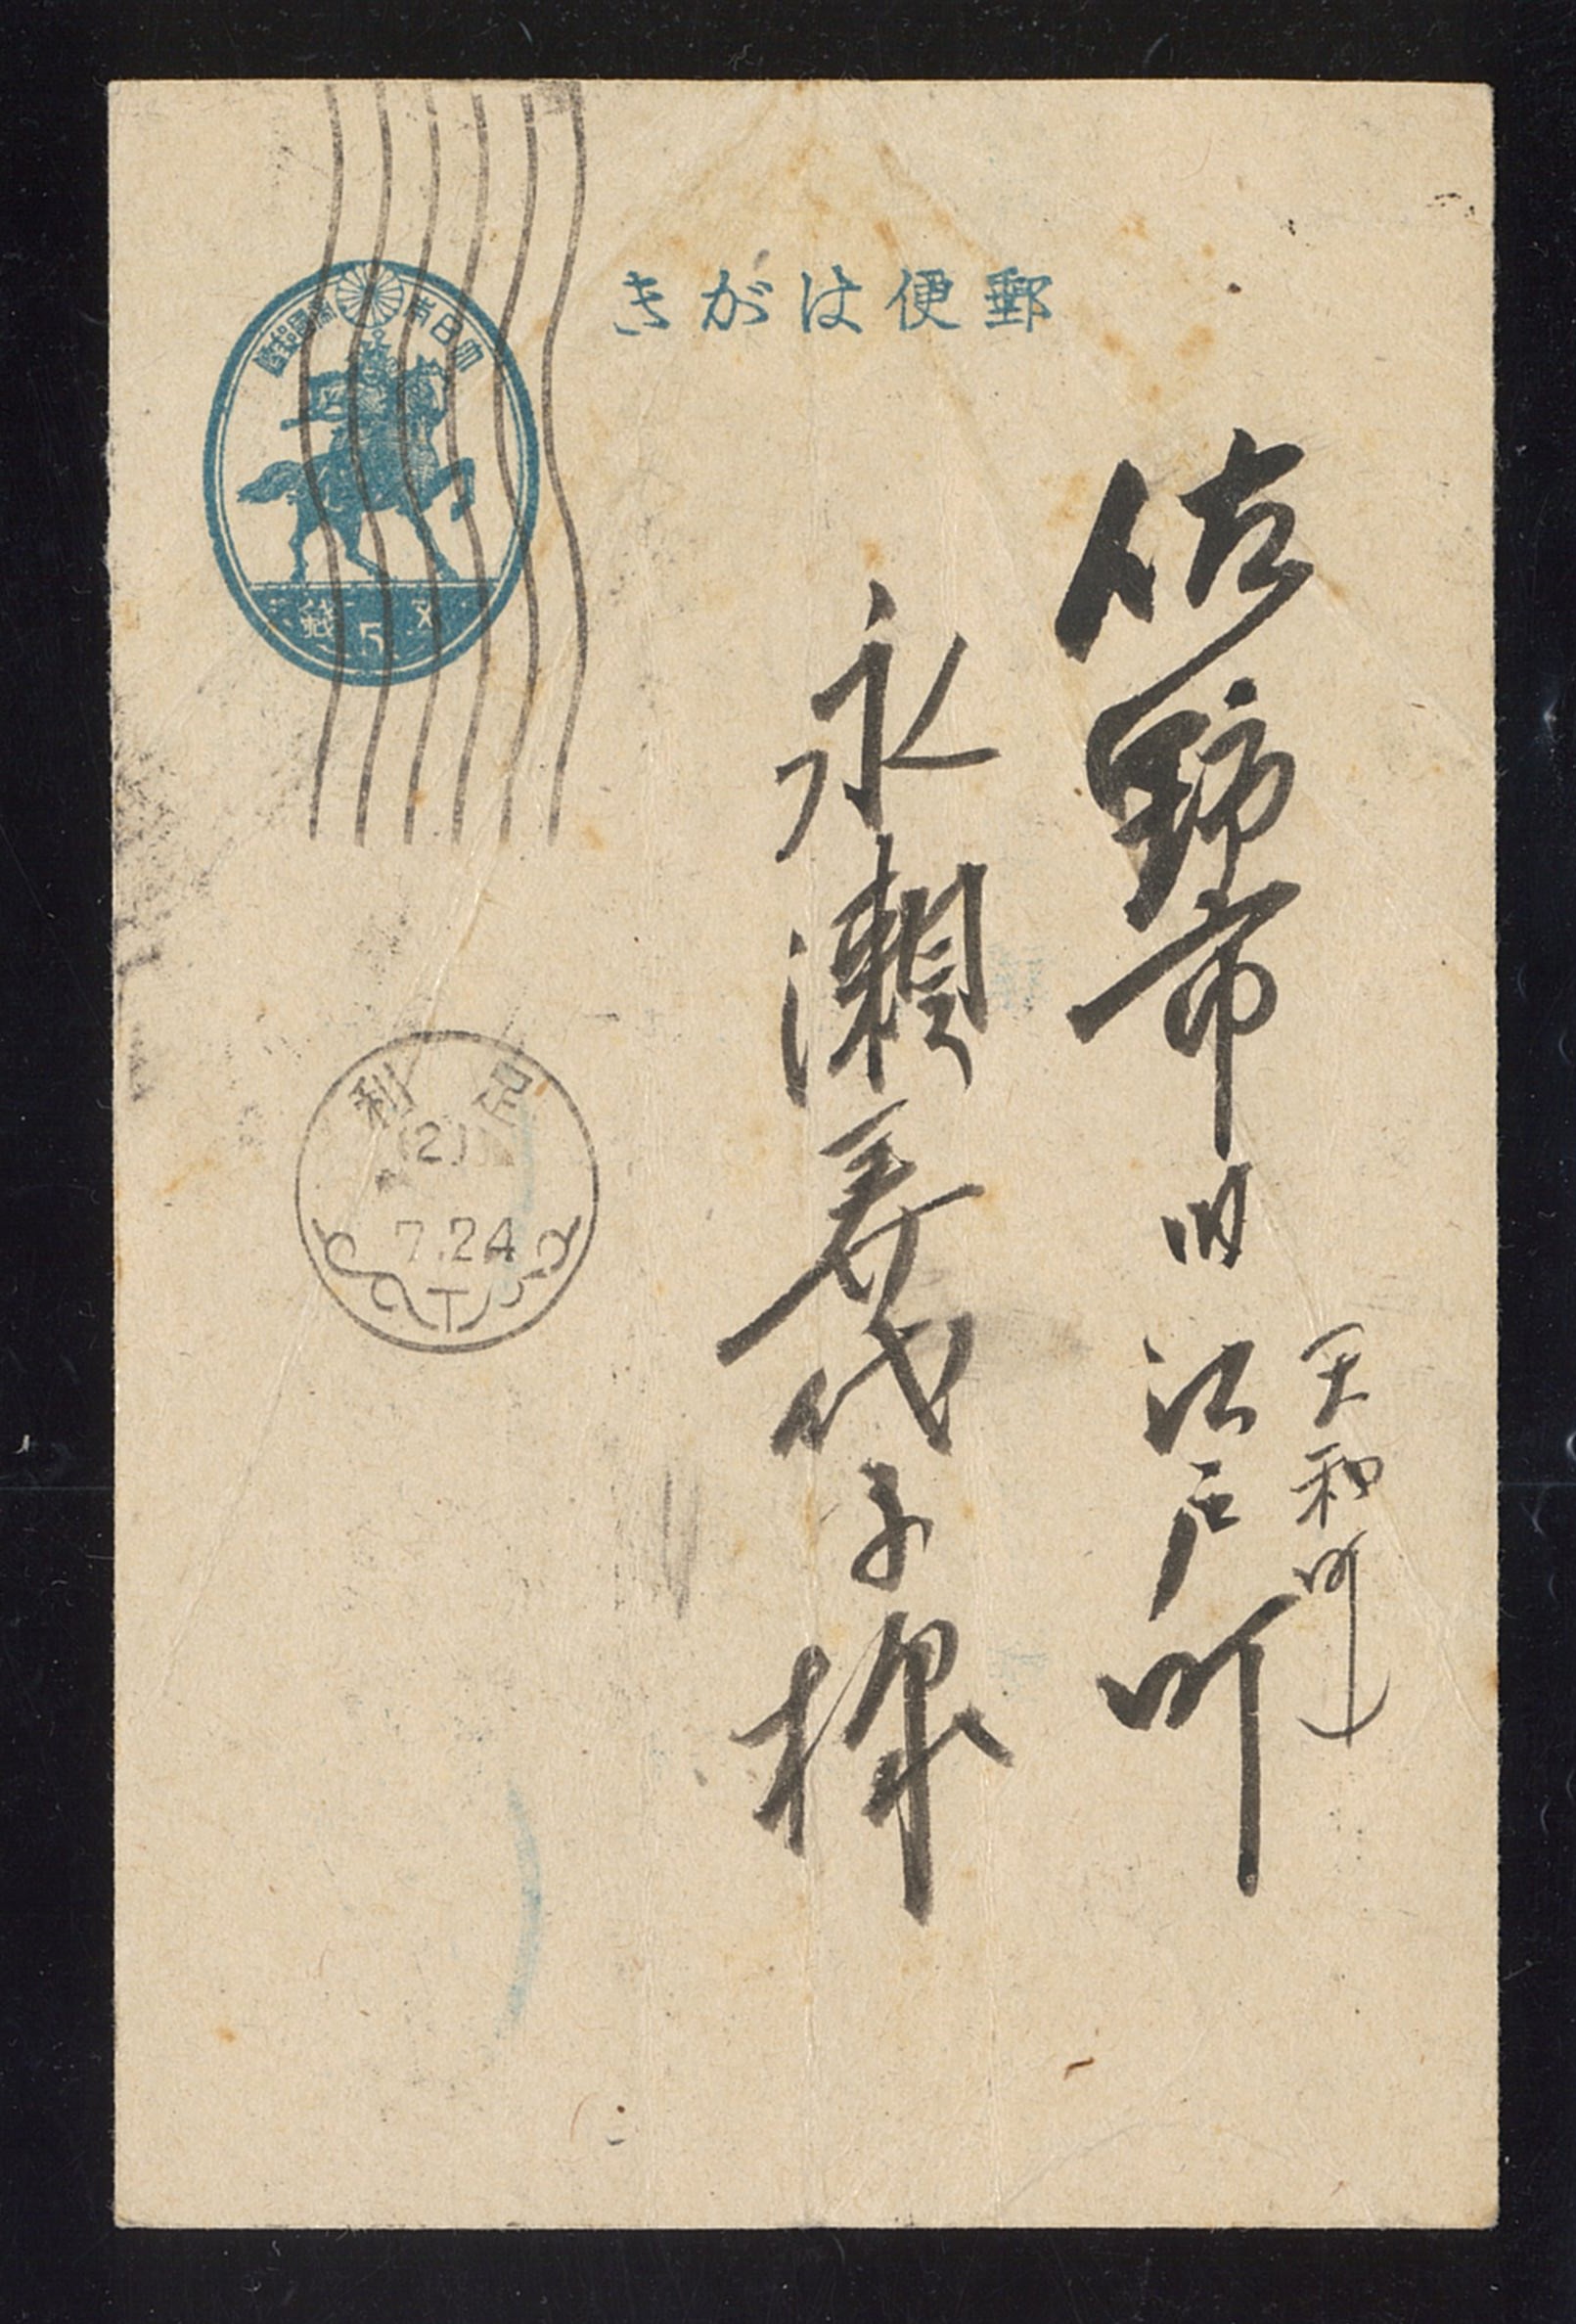 郵便はがき
大日本帝國郵便
五 5 銭
佐野市内江戸町
天和町
永瀬寿代子様
足利
7.24